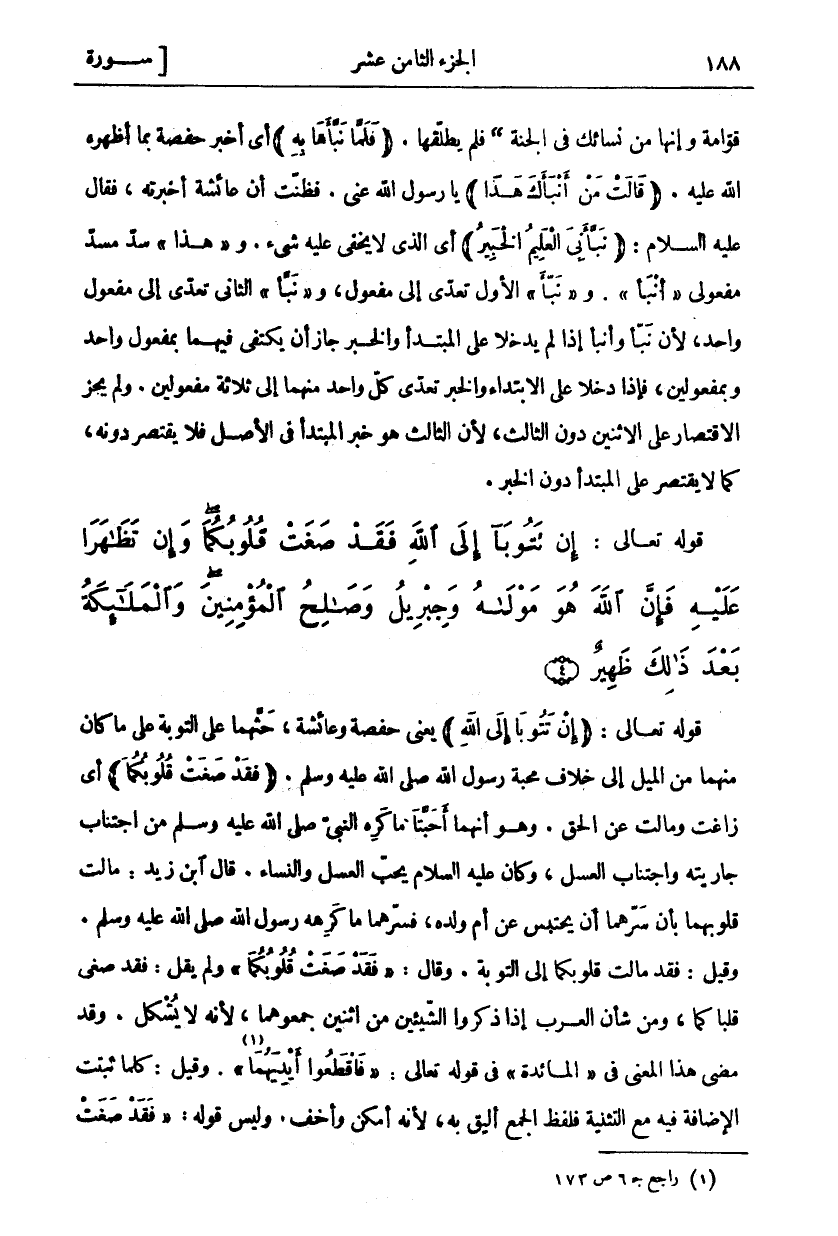 ١٨٨ الجزء الثامن عشر [ ســورة
قوّامة وإنها من نسائك فى الجنة “ فلم يطلّقها . ﴿ فَلَمَّا نَبَّأَهَا بِهِ ﴾ أى أخبر حفصة بما أظهره
الله عليه . ﴿ قَالَتْ مَنْ أَنْبَأَكَ هَـذَا ﴾ يا رسول الله عنى . فظنّت أن عائشة أخبرته ، فقال
عليه السـلام : ﴿ نَبَّأَنِىَ الْعَلِيمُ الْخَبِيرُ ﴾ أى الذى لا يخفى عليه شىء . و « هـذا » سدّ مسدّ
مفعولى « أنْبَأ » . و « نَبّأ » الأول تعدّى إلى مفعول، و « نَبَّأ » الثانى تعدّى إلى مفعول
واحد، لأن نَبّأ وأنبأ إذا لم يدخلا على المبتـدأ والخـبر جاز أن يكتفى فيهـما بمفعول واحد
وبمفعولين، فإذا دخلا على الابتداء والخبر تعدّى كلّ واحد منهما إلى ثلاثة مفعولين . ولم يجز
الاقتصار على الاثنين دون الثالث، لأن الثالث هو خبر المبتدأ فى الأصـل فلا يقتصر دونه،
كما لا يقتصر على المبتدأ دون الخبر .
قوله تعـالى : إِن تَتُوبَآ إِلَى ٱللَّهِ فَقَـدْ صَغَتْ قُلُوبُكُمَاۖ وَإِن تَظَـٰهَرَا
عَلَيْـهِ فَإِنَّ ٱللَّهَ هُوَ مَوْلَىٰـهُ وَجِبْرِيلُ وَصَـٰلِحُ ٱلْمُؤْمِنِينَۖ وَٱلْمَلَـٰٓئِكَةُ
بَعْدَ ذَٰلِكَ ظَهِيرٌ ﴿٤﴾
قوله تعـالى : ﴿ إِنْ تَتُوبَا إِلَى اللهِ ﴾ يعنى حفصة وعائشة ، حَثَّهما على التوبة على ما كان
منهما من الميل إلى خلاف محبة رسول الله صلى الله عليه وسلم . ﴿ فَقَدْ صَغَتْ قُلُوبُكُمَا ﴾ أى
زاغت ومالت عن الحق . وهـو أنهما أَحَبَّتَا ما كَرِه النبىّ صلى الله عليه وسـلم من اجتناب
جاريته واجتناب العسل ، وكان عليه السلام يحبّ العسل والنساء . قال ابن زيد : مالت
قلوبهما بأن سَرّهما أن يحتبس عن أم ولده، فسرّهما ما كَرِهه رسول الله صلى الله عليه وسلم .
وقيل : فقد مالت قلوبكما إلى التوبة . وقال : « فَقَدْ صَغَتْ قُلُوبُكُمَا » ولم يقل : فقد صغى
قلبا كما ، ومن شأن العـرب إذا ذكروا الشيئين من اثنين جمعوهما ، لأنه لا يُشْكل . وقد
مضى هذا المعنى فى « المـائدة » فى قوله تعالى : « فَاقْطَعُوا أَيْدِيَهُمَا(١) » . وقيل : كلما ثبتت
الإضافة فيه مع التثنية فلفظ الجمع أليق به، لأنه أمكن وأخف. وليس قوله : « فَقَدْ صَغَتْ
(١) راجع جـ ٦ ص ١٧٣